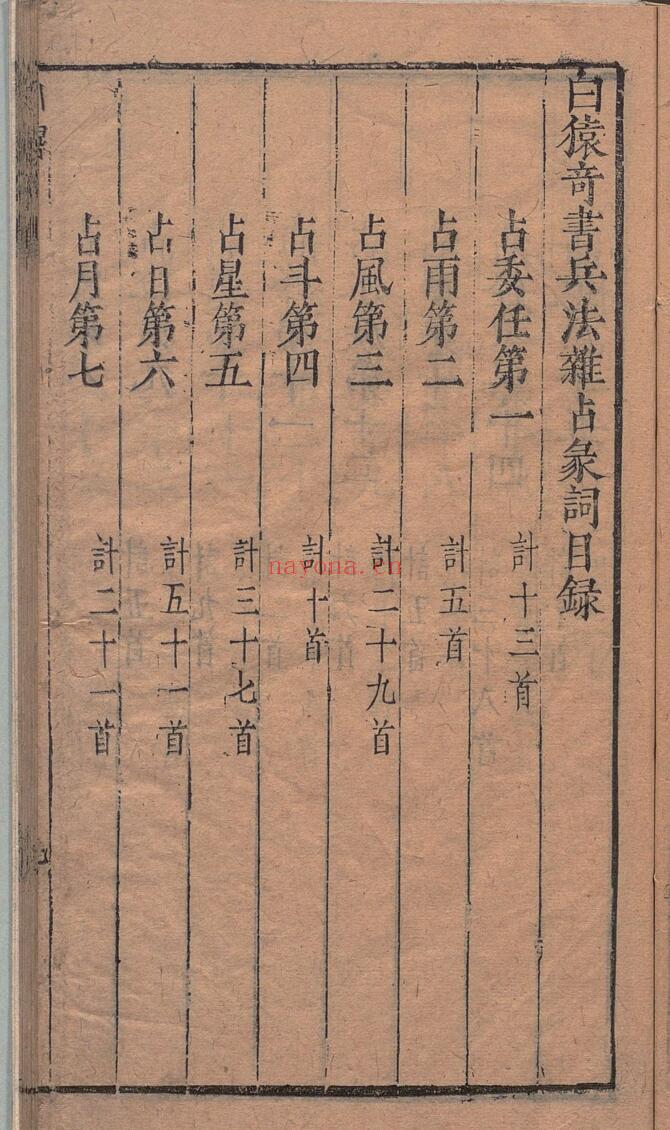 白猿竒書兵法雜占彖詞目録
占委任第一 計十三首
占雨第二 計五首
占風第三 計二十九首
占斗第四 計十首
占星第五 計三十七首
占日第六 計五十一首
占月第七 計二十一首
nayona.cn